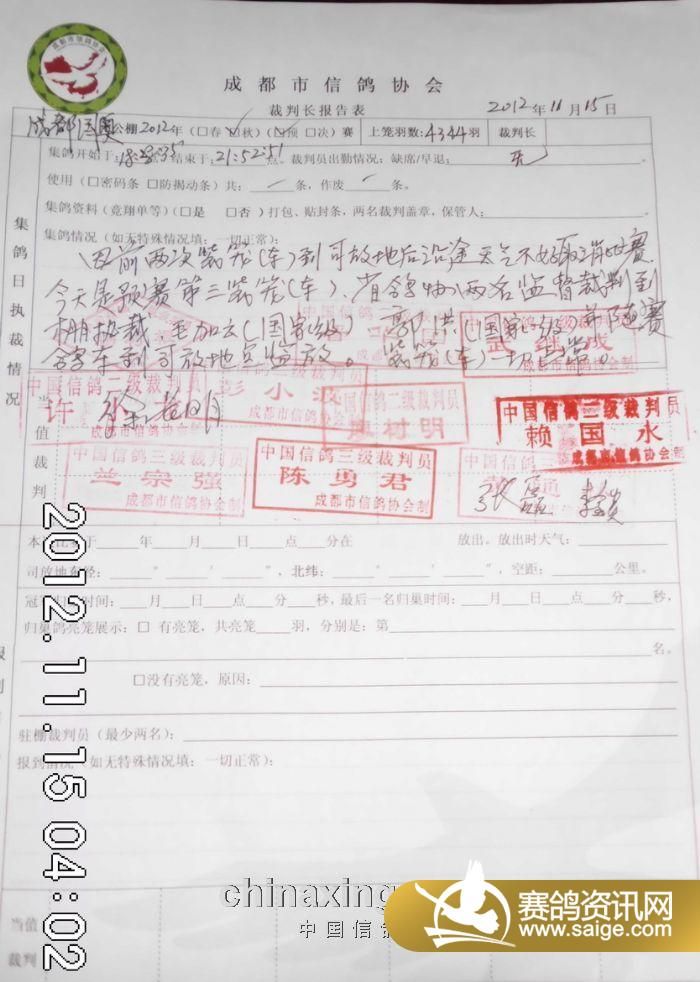 成都市信鸽协会
成都市信鸽协会
裁判长报告表
2012年11月15日
成都国奥公棚2012年(□春□秋)(□预□决)赛
上笼羽数:4344羽
裁判长
集鸽开始于: 结束于:21:52:51点。裁判员出勤情况:缺席/早退: 无
使用(□密码条□防揭动条)共: 条,作废 条。
集鸽资料(竞翔单等)(□是 □否)打包、贴封条,两名裁判盖章,保管人:
集鸽情况(如无特殊情况填:一切正常):
因前两次装笼(车)到司放地后沿途天气不好取消比赛
今天是预赛第三装笼(车)、省鸽协两名监督裁判到
棚执裁,毛加云(国家级) 郭洪(国家级 并随赛
鸽车到司放地点监放。装笼(车)一切正常。
集鸽日执裁情况
当值裁判
中国信鸽二级裁判员
彭小波
成都市信鸽协会制
中国信鸽三级裁判员
村明
成都市信鸽协会制
中国信鸽三级裁判员
赖国水
成都市信鸽协会制
中国信鸽三级裁判员
兰宗强
成都市信鸽协会制
中国信鸽三级裁判员
陈勇君
成都市信鸽协会制
继成
年 月 日 点 分在 放出。放出时天气:
司放地东经: ° ′ ″,北纬: ° ′ ″,空距: 公里。
时间: 月 日 点 分 秒,最后一名归巢时间: 月 日 点 分 秒,
归巢鸽亮笼展示:□ 有亮笼,共亮笼 羽,分别是:第
名。
□没有亮笼,原因:
驻棚裁判员(最少两名):
报到情况(如无特殊情况填:一切正常):
当值
裁判
2012.11.15 04:02
chinaxing
中国信鸽
赛鸽资讯网
www.saige.com